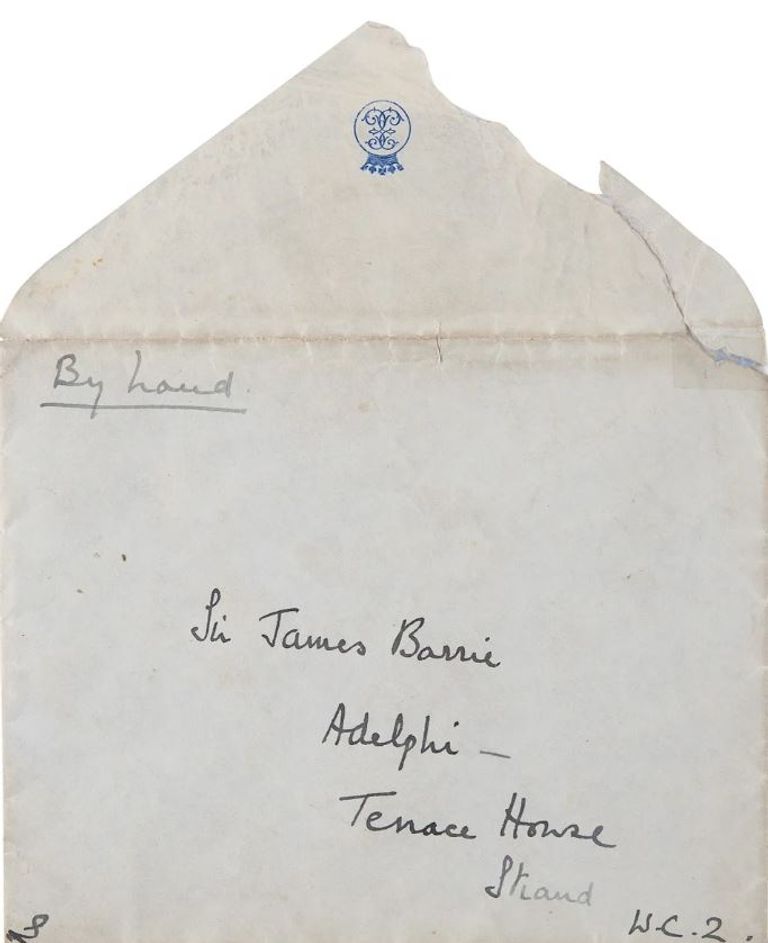 By hand.
Sir James Barrie
Adelphi —
Terrace House
Strand
W.C.2.